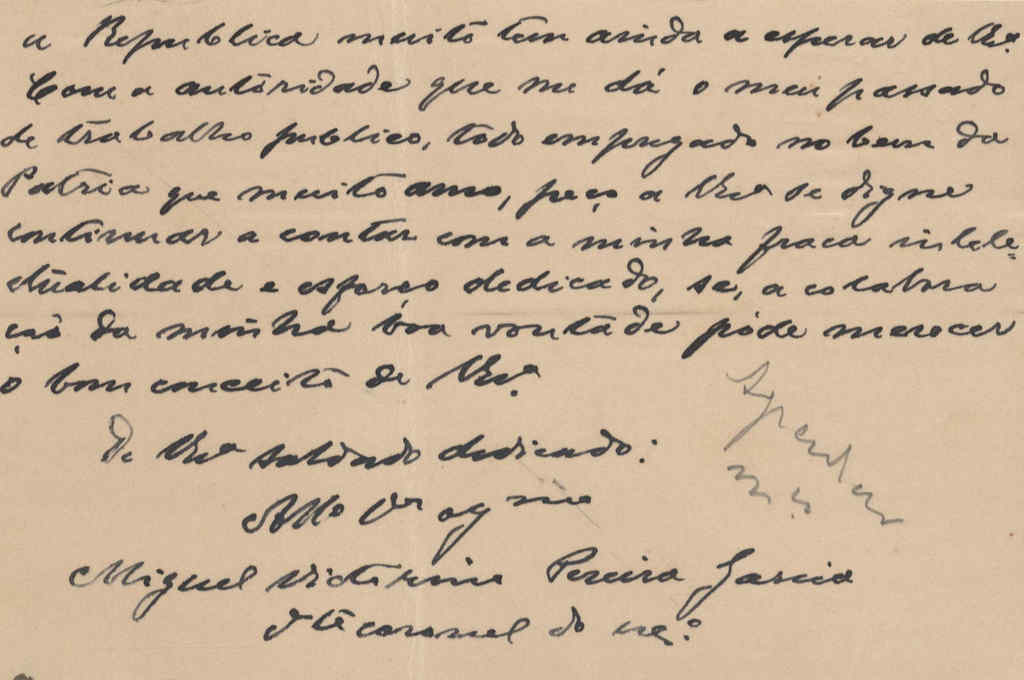 a Republica muito tem ainda a esperar de V.ª
Com a autoridade que me dá o meu passado
de trabalho publico, todo empregado no bem da
Patria que muito amo, peço a V.ª se digne
continuar a contar com a minha fraca intele=
ctualidade e esforço dedicado, se, a colabora
ção da minha boa vontade póde merecer
o bom conceito de
De soldado dedicado:
Att.º
Miguel Victorino Pereira Garcia
coronel do